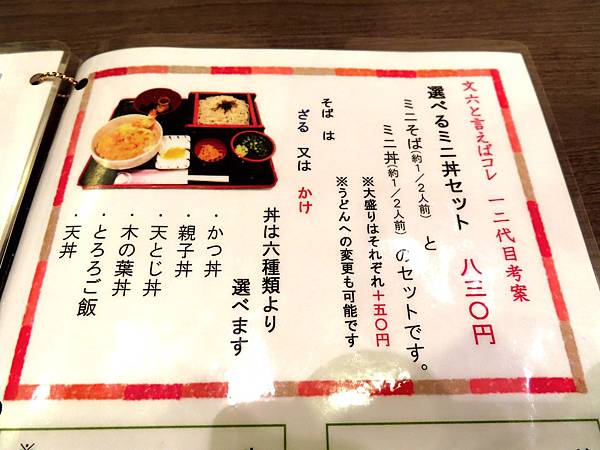 文六と言えばコレ 一二代目考案
選べるミニ丼セット 八三〇円
ミニそば(約1/2人前) と
ミニ丼(約1/2人前) のセットです。
※大盛りはそれぞれ+五〇円
※うどんへの変更も可能です
そば は
ざる 又は かけ
丼は六種類より
選べます
・かつ丼
・親子丼
・天とじ丼
・木の葉丼
・とろろご飯
・天丼
※